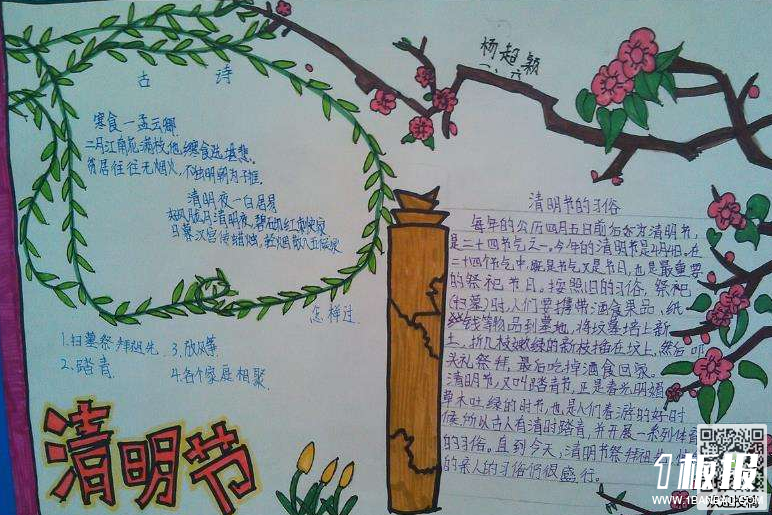 杨超颖
古诗
寒食一孟云卿
二月江南花满枝,他乡寒食远堪悲。
贫居往往无烟火,不独明朝为子推。
清明夜一白居易
好风胧月清明夜,碧砌红轩
日暮汉宫传蜡烛,轻烟散入五侯家
怎样过
1.扫墓祭拜祖先 3.放风筝
2.踏青 4.各个家庭相聚
清明节
清明节的习俗
每年的公历四月五日前后为清明节,
是二十四节气之一,今年的清明节是4月4日。在
二十四个节气中,既是节气又是节日,也是最重要
的祭祀节日。按照旧的习俗,祭祀
(扫墓)时,人们要携带酒食果品,纸
钱等物品到墓地,将坟墓培上新
土,折几枝嫩绿的新枝插在坟上,然后叩
头礼祭拜,最后吃掉酒食回家。
清明节,又叫踏青节,正是春光明媚
草木吐绿的时节,也是人们春游的好时
候,所以古人有清明踏青,并开展一系列体育
的习俗。直到今天,清明节祭拜祖先,
的亲人的习俗仍很盛行。
1板报
WWW.1BANBAO.COM
欢迎投稿